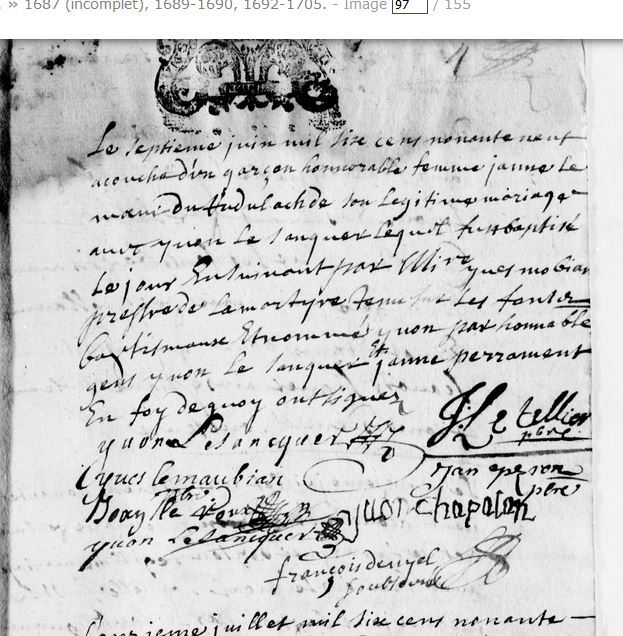 » 1687 (incomplet), 1689-1690, 1692-1705. - Image 97 / 155
Le septieme juin mil six cens nonante neuf
acoucha d'vn garçon honnorable femme janne Le
de son Legitime mariage
avec yvon Le sanquer Lequel fust baptisé
Le jour Ensuivant par Mire yves mobian
prestre de Lamartyre tenu sur Les fonts
baptismaux Et nommé yvon par honnable
gens yvon le sanquer Et janne perrament
En foy de quoy ont signer
yvon Lesancquer
J: Le tellier
pbre.
yves lemaubian
pbre
jan
pbre
yvon Chapalon
yvon Lesancquer
francois denyel
juillet mil six cens nonante